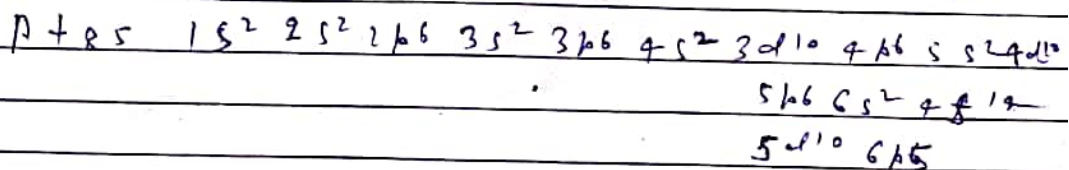 At 85 1s² 2s² 2p6 3s² 3p6 4s² 3d10 4p6 5s² 4d10
5p6 6s² 4f14
5d10 6p5